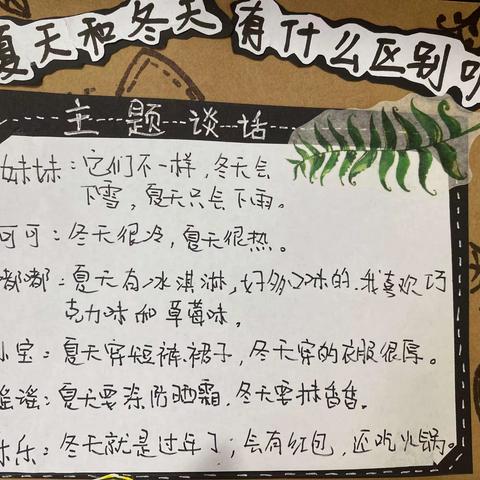 夏天和冬天有什么区别
主题谈话
妹妹：它们不一样，冬天会
下雪，夏天只会下雨。
可可：冬天很冷，夏天很热。
嘟嘟：夏天有冰淇淋，好多口味的，我喜欢巧
克力味和草莓味。
小宝：夏天穿短裤、裙子，冬天穿的衣服很厚。
瑶瑶：夏天要涂防晒霜，冬天要抹香香。
乐乐：冬天就是过年了；会有红包，还吃火锅。